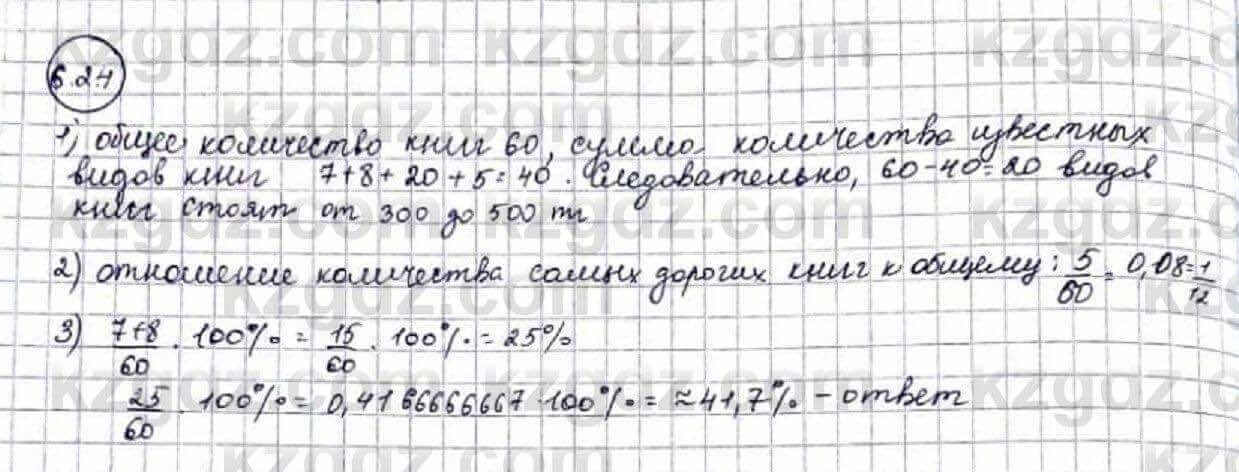 6.24
1) общее количество книг 60, сумма количества известных
видов книг 7+8+20+5=40. Следовательно, 60-40=20 видов
книг стоят от 300 до 500 тг
2) отношение количества самых дорогих книг к общему: 5/60 = 0,08=1/12
3) 7+8/60 · 100% = 15/60 · 100% = 25%
25/60 · 100% = 0,41666666667·100% = ≈41,7% - ответ
kzgdz.com